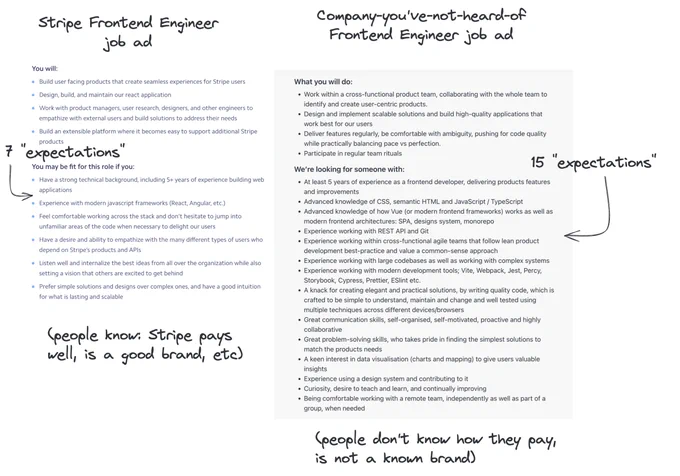 Stripe Frontend Engineer
job ad
You will:
Build user facing products that create seamless experiences for Stripe users
Design, build, and maintain our react application
Work with product managers, user research, designers, and other engineers to
empathize with external users and build solutions to address their needs
Build an extensible platform where it becomes easy to support additional Stripe
products
7 "expectations"
You may be fit for this role if you:
Have a strong technical background, including 5+ years of experience building web
applications
Experience with modern javascript frameworks (React, Angular, etc.)
Feel comfortable working across the stack and don't hesitate to jump into
unfamiliar areas of the code when necessary to delight our users
Have a desire and ability to empathize with the many different types of users who
depend on Stripe's products and APIs
Listen well and internalize the best ideas from all over the organization while also
setting a vision that others are excited to get behind
Prefer simple solutions and designs over complex ones, and have a good intuition
for what is lasting and scalable
(people know: Stripe pays
well, is a good brand, etc)
Company-you've-not-heard-of
Frontend Engineer job ad
What you will do:
Work within a cross-functional product team, collaborating with the whole team to
identify and create user-centric products.
Design and implement scalable solutions and build high-quality applications that
work best for our users
Deliver features regularly, be comfortable with ambiguity, pushing for code quality
while practically balancing pace vs perfection.
Participate in regular team rituals
15 "expectations"
We're looking for someone with:
At least 5 years of experience as a frontend developer, delivering products features
and improvements
Advanced knowledge of CSS, semantic HTML and JavaScript / TypeScript
Advanced knowledge of how Vue (or modern frontend frameworks) works as well as
modern frontend architectures: SPA, designs system, monorepo
Experience working with REST API and Git
Experience working within cross-functional agile teams that follow lean product
development best-practice and value a common-sense approach
Experience working with large codebases as well as working with complex systems
Experience working with modern development tools; Vite, Webpack, Jest, Percy,
Storybook, Cypress, Prettier, ESlint etc.
A knack for creating elegant and practical solutions, by writing quality code, which is
crafted to be simple to understand, maintain and change and well tested using
multiple techniques across different devices/browsers
Great communication skills, self-organised, self-motivated, proactive and highly
collaborative
Great problem-solving skills, who takes pride in finding the simplest solutions to
match the products needs
A keen interest in data visualisation (charts and mapping) to give users valuable
insights
Experience using a design system and contributing to it
Curiosity, desire to teach and learn, and continually improving
Being comfortable working with a remote team, independently as well as part of a
group, when needed
(people don't know how they pay,
is not a known brand)